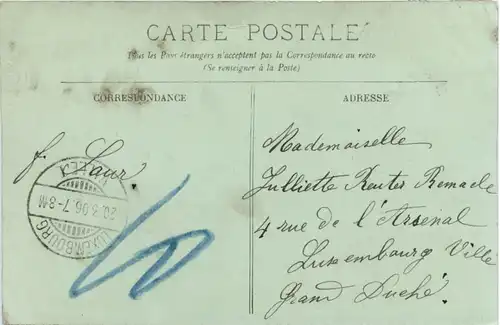 CARTE POSTALE
Tous les Pays étrangers n'acceptent pas la Correspondance au recto
(Se renseigner à la Poste)
CORRESPONDANCE
ADRESSE
f. Laur.
LUXEMBOURG
VILLE
20.3.06.7-8M
10
Mademoiselle
Julliette Reuter Remacle
4 rue de l'Arsenal
Luxembourg Ville
Grand Duché